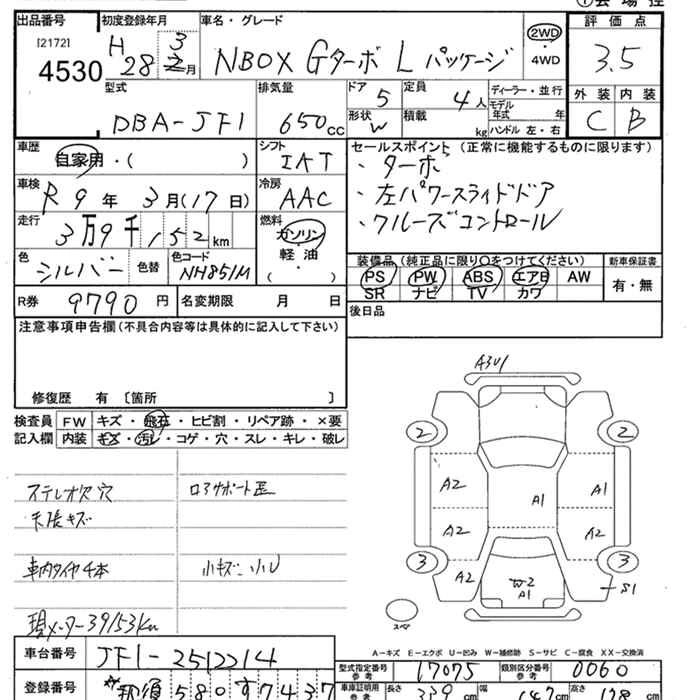 ①会場控
出品番号 初度登録年月 車名・グレード 評価点
[2172] H 28 3 月 NBOX Gターボ L パッケージ 2WD ・4WD 3.5
4530
型式 排気量 ドア 5 定員 4人 ディーラー・並行 外装 内装
DBA-JF1 650cc 形状 W 積載 kg モデル年式 年 C B
ハンドル 左・右
車歴 自家用・( ) シフト IAT セールスポイント (正常に機能するものに限ります)
・ターボ
車検 R9年 3月(17日) 冷房 AAC ・左パワースライドドア
走行 3万9千152km 燃料 ガソリン ・クルーズコントロール
軽油
・( )
色 シルバー 色替 色コード NH851M 装備品(純正品に限り○をつけてください) 新車保証書
PS PW ABS エアB AW 有・無
SR ナビ TV カワ
R券 9790円 名変期限 月 日 後日品
注意事項申告欄(不具合内容等は具体的に記入して下さい)
修復歴 有 〔箇所 〕
検査員 FW キズ・飛石・ヒビ割・リペア跡・×要
記入欄 内装 キズ・汚レ・コゲ・穴・スレ・キレ・破レ
ステレオ欠 穴 ロアサポート歪
天張キズ
車内タイヤ4本 小キズ 小U
現メーター39153km
A3U1
2 2
A2 A1 A1
A2 A2
3 3
A2 W2 A1 S1
スペア
A-キズ E-エクボ U-凹み W-補修跡 S-サビ C-腐食 XX-交換済
車台番号 JF1-2512214 型式指定番号 参考 17075 類別区分番号 参考 0060
登録番号 那須 580 す 7437 車庫証明用 参考 長さ 339cm 幅 147cm 高さ 178